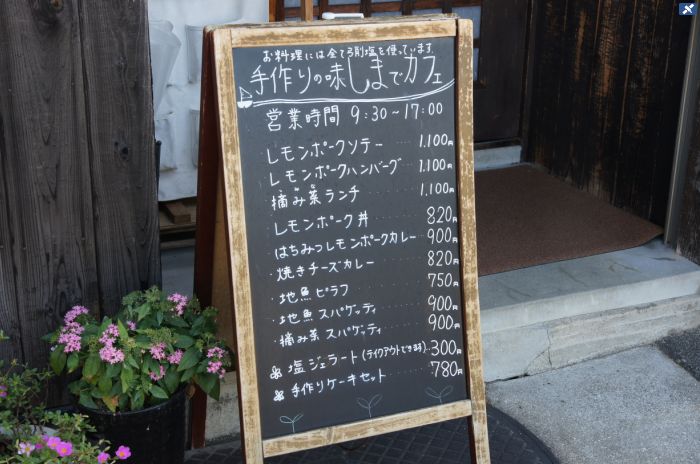 お料理には全て弓削塩を使っています。
手作りの味しまでカフェ
営業時間 9:30～17:00
レモンポークソテー 1,100円
レモンポークハンバーグ 1,100円
摘み菜ランチ 1,100円
レモンポーク丼 820円
はちみつレモンポークカレー 900円
焼きチーズカレー 820円
地魚ピラフ 750円
地魚スパゲッティ 900円
摘み菜スパゲッティ 900円
塩ジェラート(テイクアウトできます) 300円
手作りケーキセット 780円